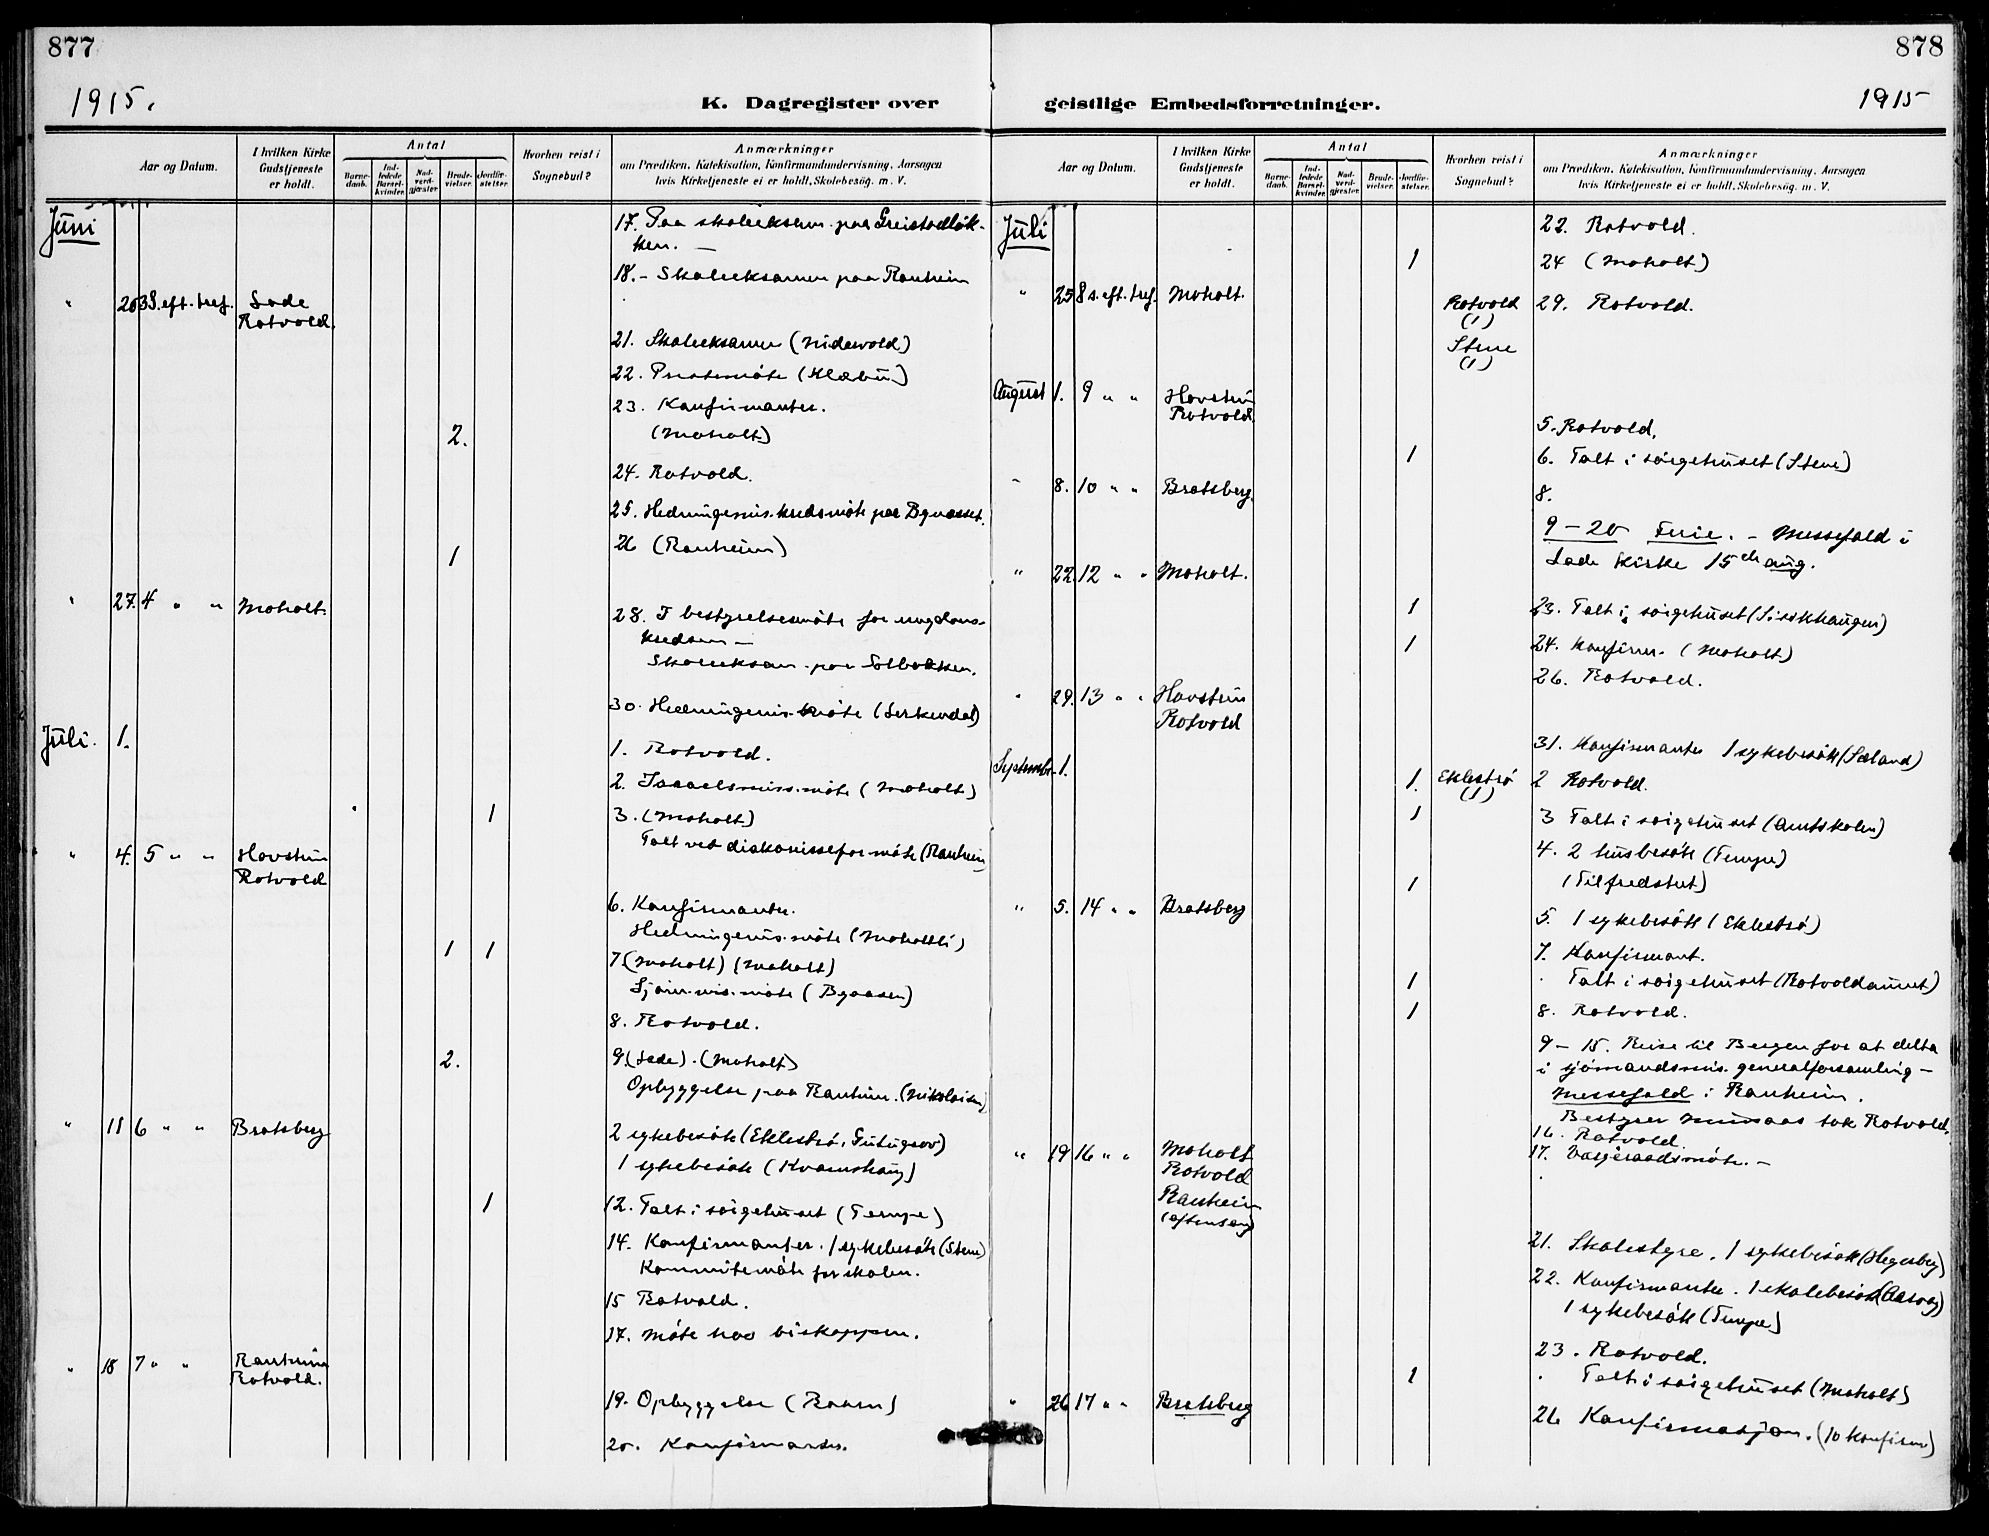 877
1915.
K. Dagregister over
Aar og Datum.
I hvilken Kirke Gudstjeneste er holdt.
Antal
Barne-daab.
Ind-ledede Barsel-kvinder.
Nad-verd-gjæster.
Brude-vielser.
Jordfæ-stelser.
Hvorhen reist i Sognebud?
Anmærkninger
om Prædiken, Katekisation, Konfirmandundervisning, Aarsagen
hvis Kirketjeneste ei er holdt, Skolebesøg. m. V.
Juni
17. Paa skoleeksam. paa Greistadløk-
ken. —
18. – Skoleeksamen paa Ranheim
" 20 3 S. eft. tref. Lade
Rotvold.
21. Skoleeksamen (Nidarvold)
22. Prestemøte (Klæbu)
23. Konfirmanter.
2. (Moholt)
24. Rotvold.
25. Hedningemis. kredsmøte paa Bynesset.
1 26 (Ranheim)
" 27. 4 " " Moholt.
28. I bestyrelsesmøte for ungdoms-
kredsen —
Skoleeksam. paa Solbakken.
30. Hedningemis. møte (Lerkendal)
Juli. 1.
1. Rotvold.
2. Israelsmiss. møte (Moholt)
1 3. (Moholt)
Talt ved diakonissefor. møte (Ranheim)
" 4. 5 " " Havstein
Rotvold
6. Konfirmanter.
Hedningemis. møte (Moholtli)
1 1 7. (Moholt) (Moholt)
Sjøm. mis. møte (Byaasen)
8. Rotvold.
2. 9. (Lade). (Moholt)
Opbyggelse paa Ranheim. (Nikolaisen)
" 11 6 " " Bratsberg
2 sykebesøk (Eklestrø,
1 sykebesøk (Kvamshaug)
1 12. Talt i sørgehuset (Tempe)
14. Konfirmanter. 1 sykebesøk (Stene)
Kommitemøte for skolen.
15 Rotvold.
17. Møte hos biskoppen.
" 18 7 " " Ranheim
Rotvold.
19. Opbyggelse
20. Konfirmanter.
878
1915
geistlige Embedsforretninger.
Aar og Datum.
I hvilken Kirke Gudstjeneste er holdt.
Antal
Barne-daab.
Ind-ledede Barsel-kvinder.
Nad-verd-gjæster.
Brude-vielser.
Jordfæ-stelser.
Hvorhen reist i Sognebud?
Anmærkninger
om Prædiken, Katekisation, Konfirmandundervisning, Aarsagen
hvis Kirketjeneste ei er holdt, Skolebesøg. m. V.
Juli
22. Rotvold.
1 24 (Moholt)
" 25 8 s. eft. tref. Moholt. Rotvold 29. Rotvold.
(1)
Stene
(1)
August 1. 9 " " Havstein
Rotvold.
5. Rotvold.
1 6. Talt i sørgehuset (Stene)
" 8. 10 " " Bratsberg. 8.
9 – 20 Ferie. – Messefald i
Lade kirke 15de aug.
" 22. 12 " " Moholt.
1 23. Talt i sørgehuset
1 24. Konfirm. (Moholt)
26. Rotvold.
" 29. 13 " " Havstein
Rotvold
31. Konfirmanter 1 sykebesøk (Sæland)
Septembr. 1.
1. Eklestrø 2 Rotvold.
(1)
1 3 Talt i sørgehuset (Amtskolen)
4. 2 husbesøk (Tempe)
1 (Tilfredshet)
" 5. 14 " " Bratsberg
5. 1 sykebesøk (Eklestrø)
7. Konfirmant.
1 Talt i sørgehuset (Rotvoldaunet)
1 8. Rotvold.
9 – 15. Reise til Bergen for at delta
i sjømandsmis. generalforsamling –
Messefald i Ranheim.
Bestyrer tok Rotvold.
16. Rotvold.
" 19 16 " " Moholt
17. Vergeraadsmøte. –
Rotvold
Ranheim
(aftensang)
21. Skolestyre. 1 sykebesøk
22. Konfirmanter. 1 skolebesøk
1 sykebesøk (Tempe)
23. Rotvold.
1 Talt i sørgehuset (Moholt)
" 26 17 " " Bratsberg
26 Konfirmasjon. (10 konfirm)